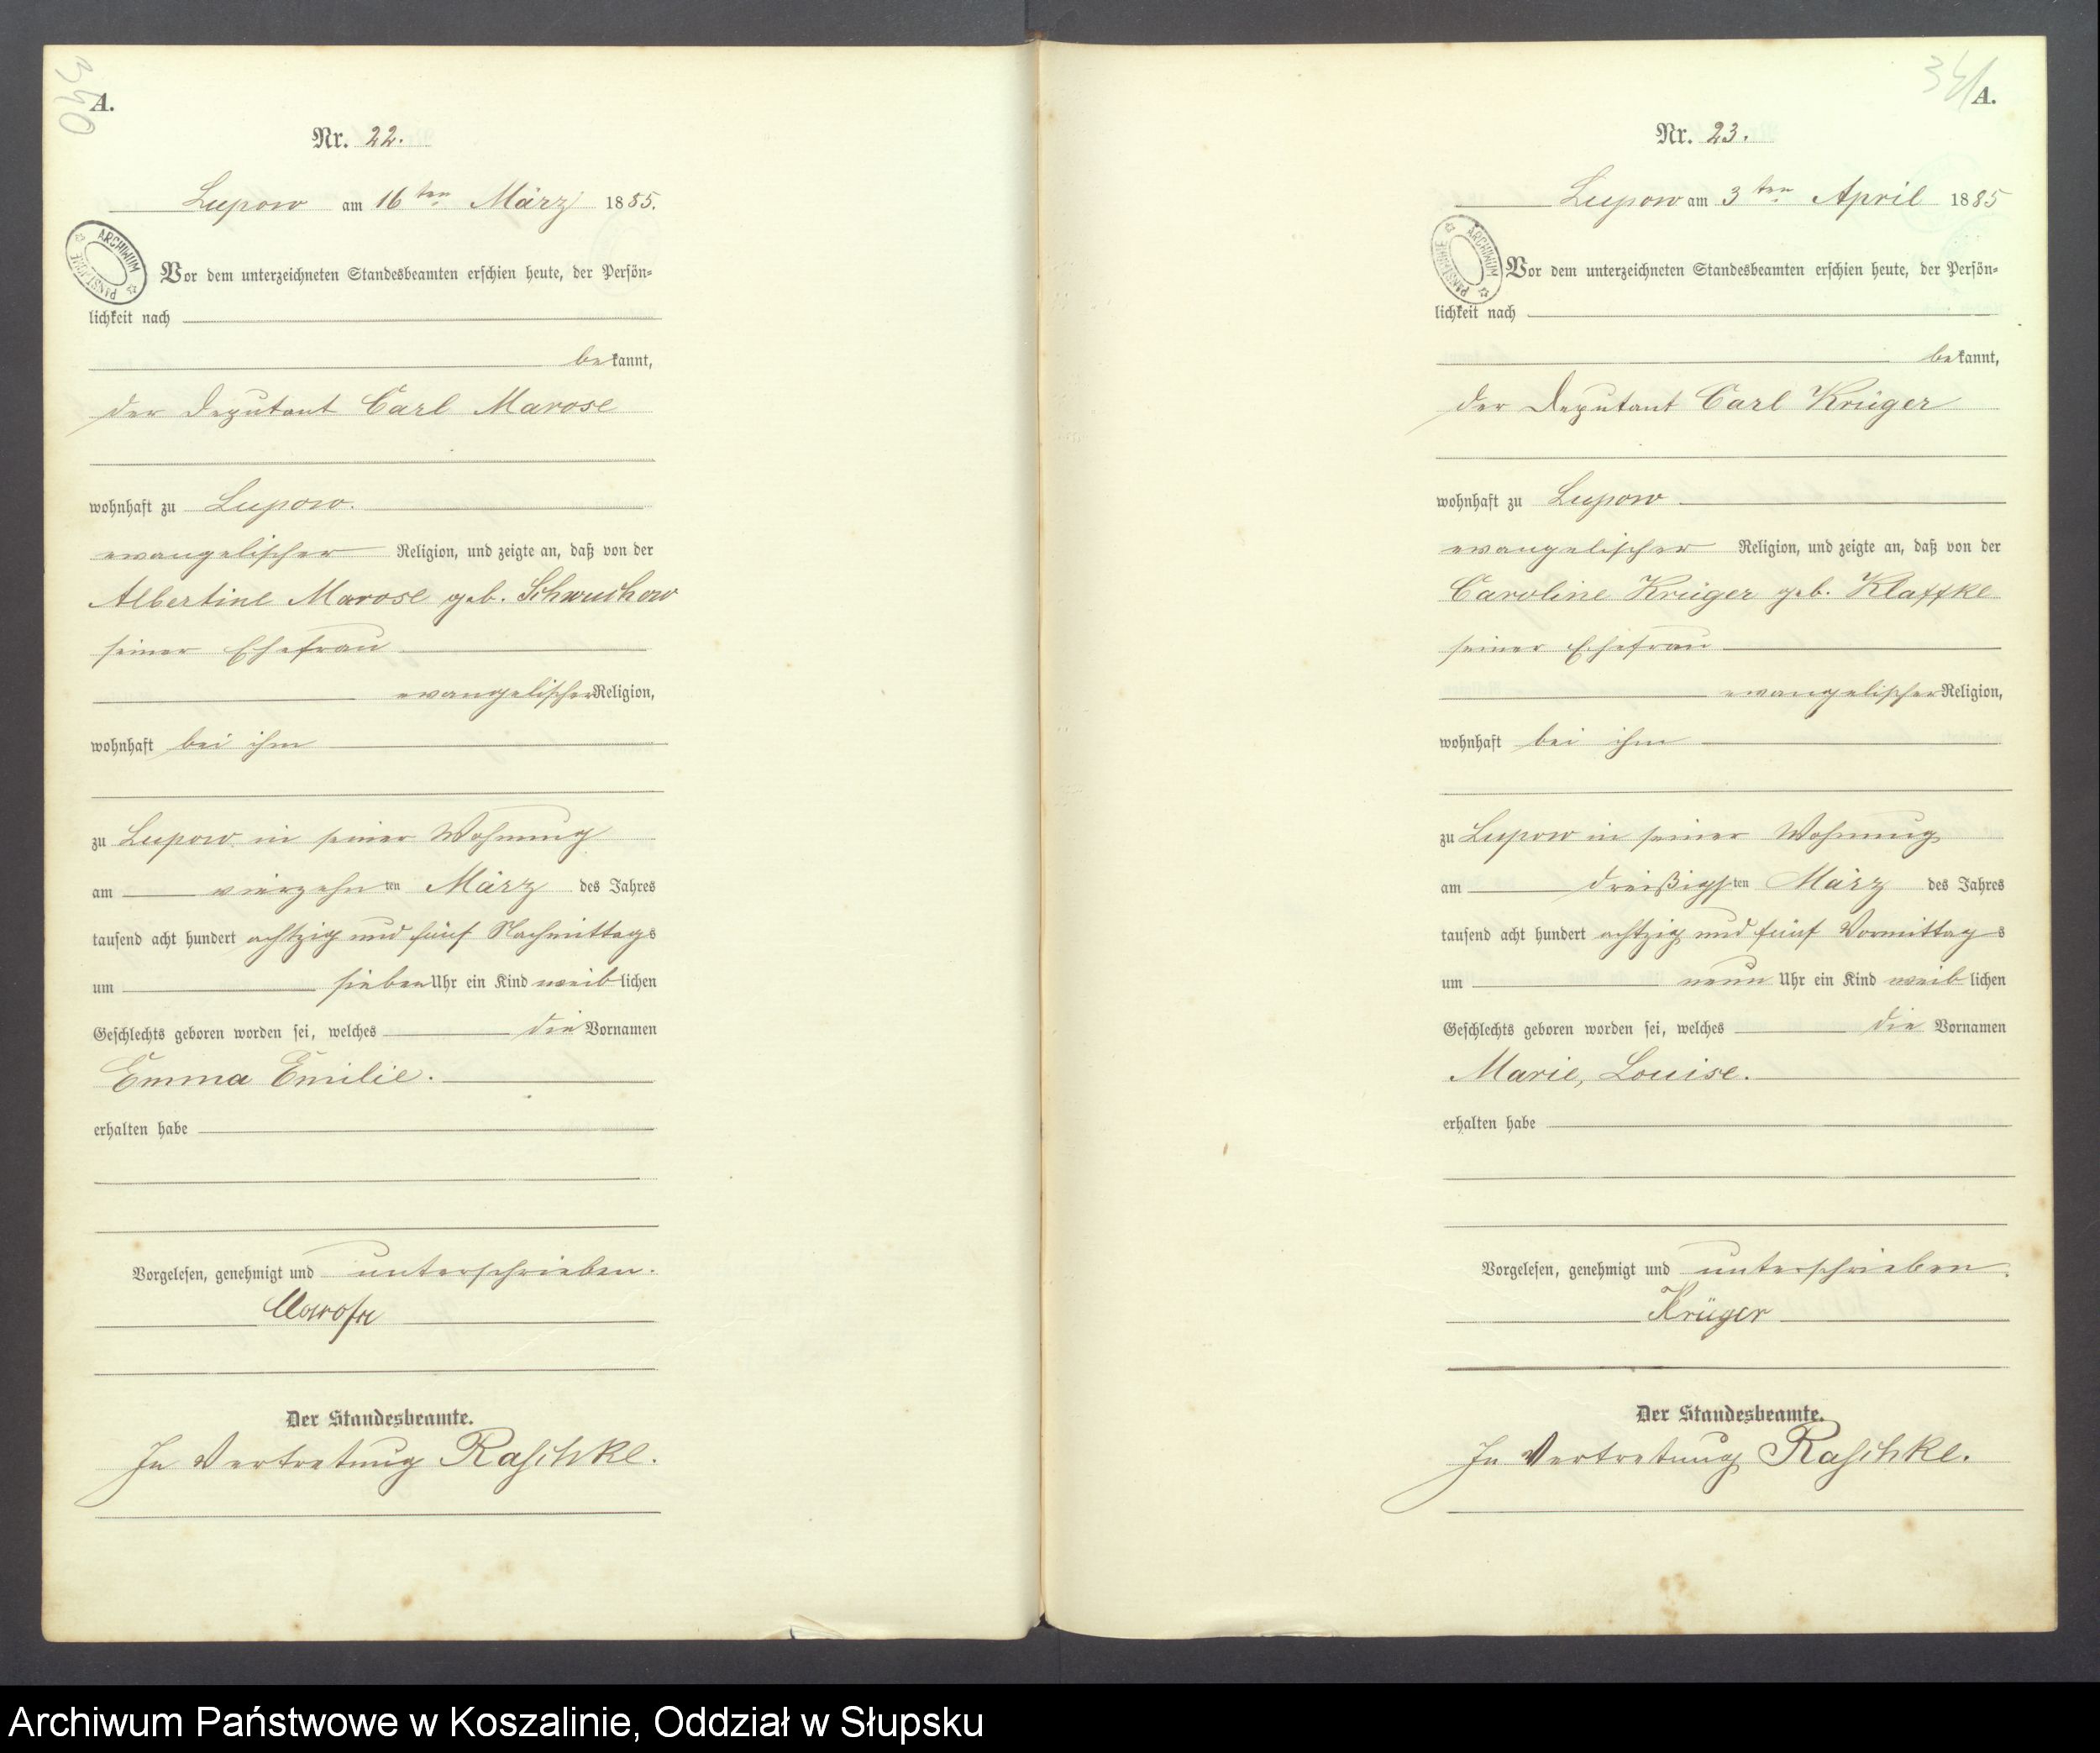 340
A.
Nr. 22.
Lupow am 16 ten März 1885.
ARCHIWUM PAŃSTWOWE
Vor dem unterzeichneten Standesbeamten erschien heute, der Persön-
lichkeit nach
bekannt,
der Deputant Carl Marose
wohnhaft zu Lupow.
evangelischer Religion, und zeigte an, daß von der
Albertine Marose geb. Schwuchow
seiner Ehefrau
evangelischer Religion,
wohnhaft bei ihm
zu Lupow in seiner Wohnung
am vierzehnten März des Jahres
tausend acht hundert achtzig und fünf Nachmittags
um sieben Uhr ein Kind weiblichen
Geschlechts geboren worden sei, welches die Vornamen
Emma Emilie.
erhalten habe
Vorgelesen, genehmigt und unterschrieben.
Marose
Der Standesbeamte.
In Vertretung Raschke.
341
A.
Nr. 23.
Lupow am 3 ten April 1885
ARCHIWUM PAŃSTWOWE
Vor dem unterzeichneten Standesbeamten erschien heute, der Persön-
lichkeit nach
bekannt,
der Deputant Carl Krüger
wohnhaft zu Lupow
evangelischer Religion, und zeigte an, daß von der
Caroline Krüger geb. Klaffke
seiner Ehefrau
evangelischer Religion,
wohnhaft bei ihm
zu Lupow in seiner Wohnung
am dreißigsten März des Jahres
tausend acht hundert achtzig und fünf Vormittags
um neun Uhr ein Kind weiblichen
Geschlechts geboren worden sei, welches die Vornamen
Marie, Louise.
erhalten habe
Vorgelesen, genehmigt und unterschrieben.
Krüger
Der Standesbeamte.
In Vertretung Raschke.
Archiwum Państwowe w Koszalinie, Oddział w Słupsku